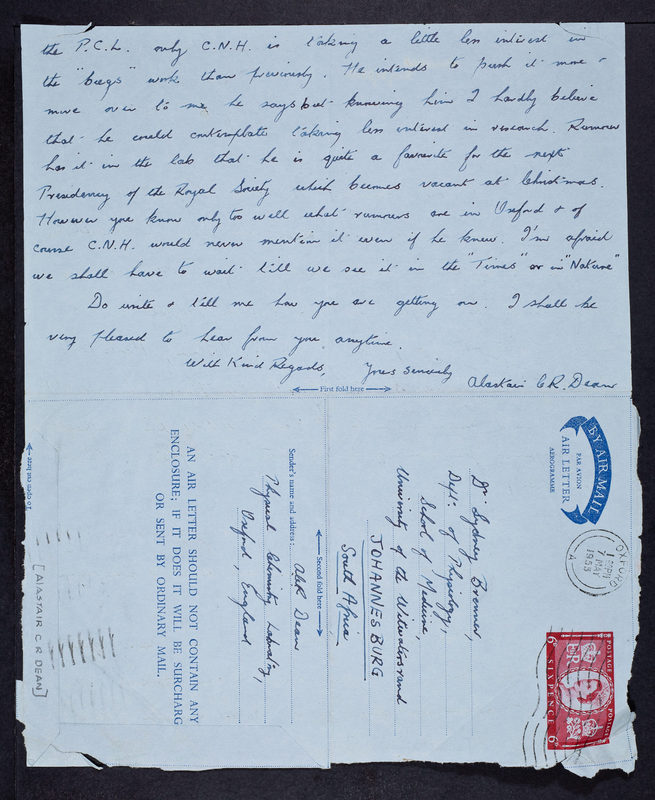 the P.C.L. only C.N.H. is taking a little less interest in
the "bugs" work than previously. He intends to push it more &
more over to me he says but knowing him I hardly believe
that he could contemplate taking less interest in research. Rumour
has it in the lab that he is quite a favourite for the next
Presidency of the Royal Society which becomes vacant at Christmas.
However you know only too well what rumours are in Oxford & of
course C.N.H. would never mention it even if he knew. I'm afraid
we shall have to wait till we see it in the "Times" or in "Nature"
Do write & tell me how you are getting on. I shall be
very pleased to hear from you anytime.
With Kind Regards,
Yours sincerely
Alastair C R. Dean
First fold here
BY AIR MAIL
PAR AVION
AIR LETTER
AEROGRAMME
OXFORD
PM
7 MAY
1955
A
POSTAGE
POSTAGE
E R
6D SIXPENCE 6D
Dr. Sydney Brenner,
Dept. of Physiology,
School of Medicine,
University of the Witwatersrand
JOHANNESBURG
South Africa
Second fold here
Sender's name and address:
Dean
Physical Chemistry Laboratory,
Oxford, England
AN AIR LETTER SHOULD NOT CONTAIN ANY
ENCLOSURE; IF IT DOES IT WILL BE SURCHARG
OR SENT BY ORDINARY MAIL.
To open cut here
[ALASTAIR C R DEAN]